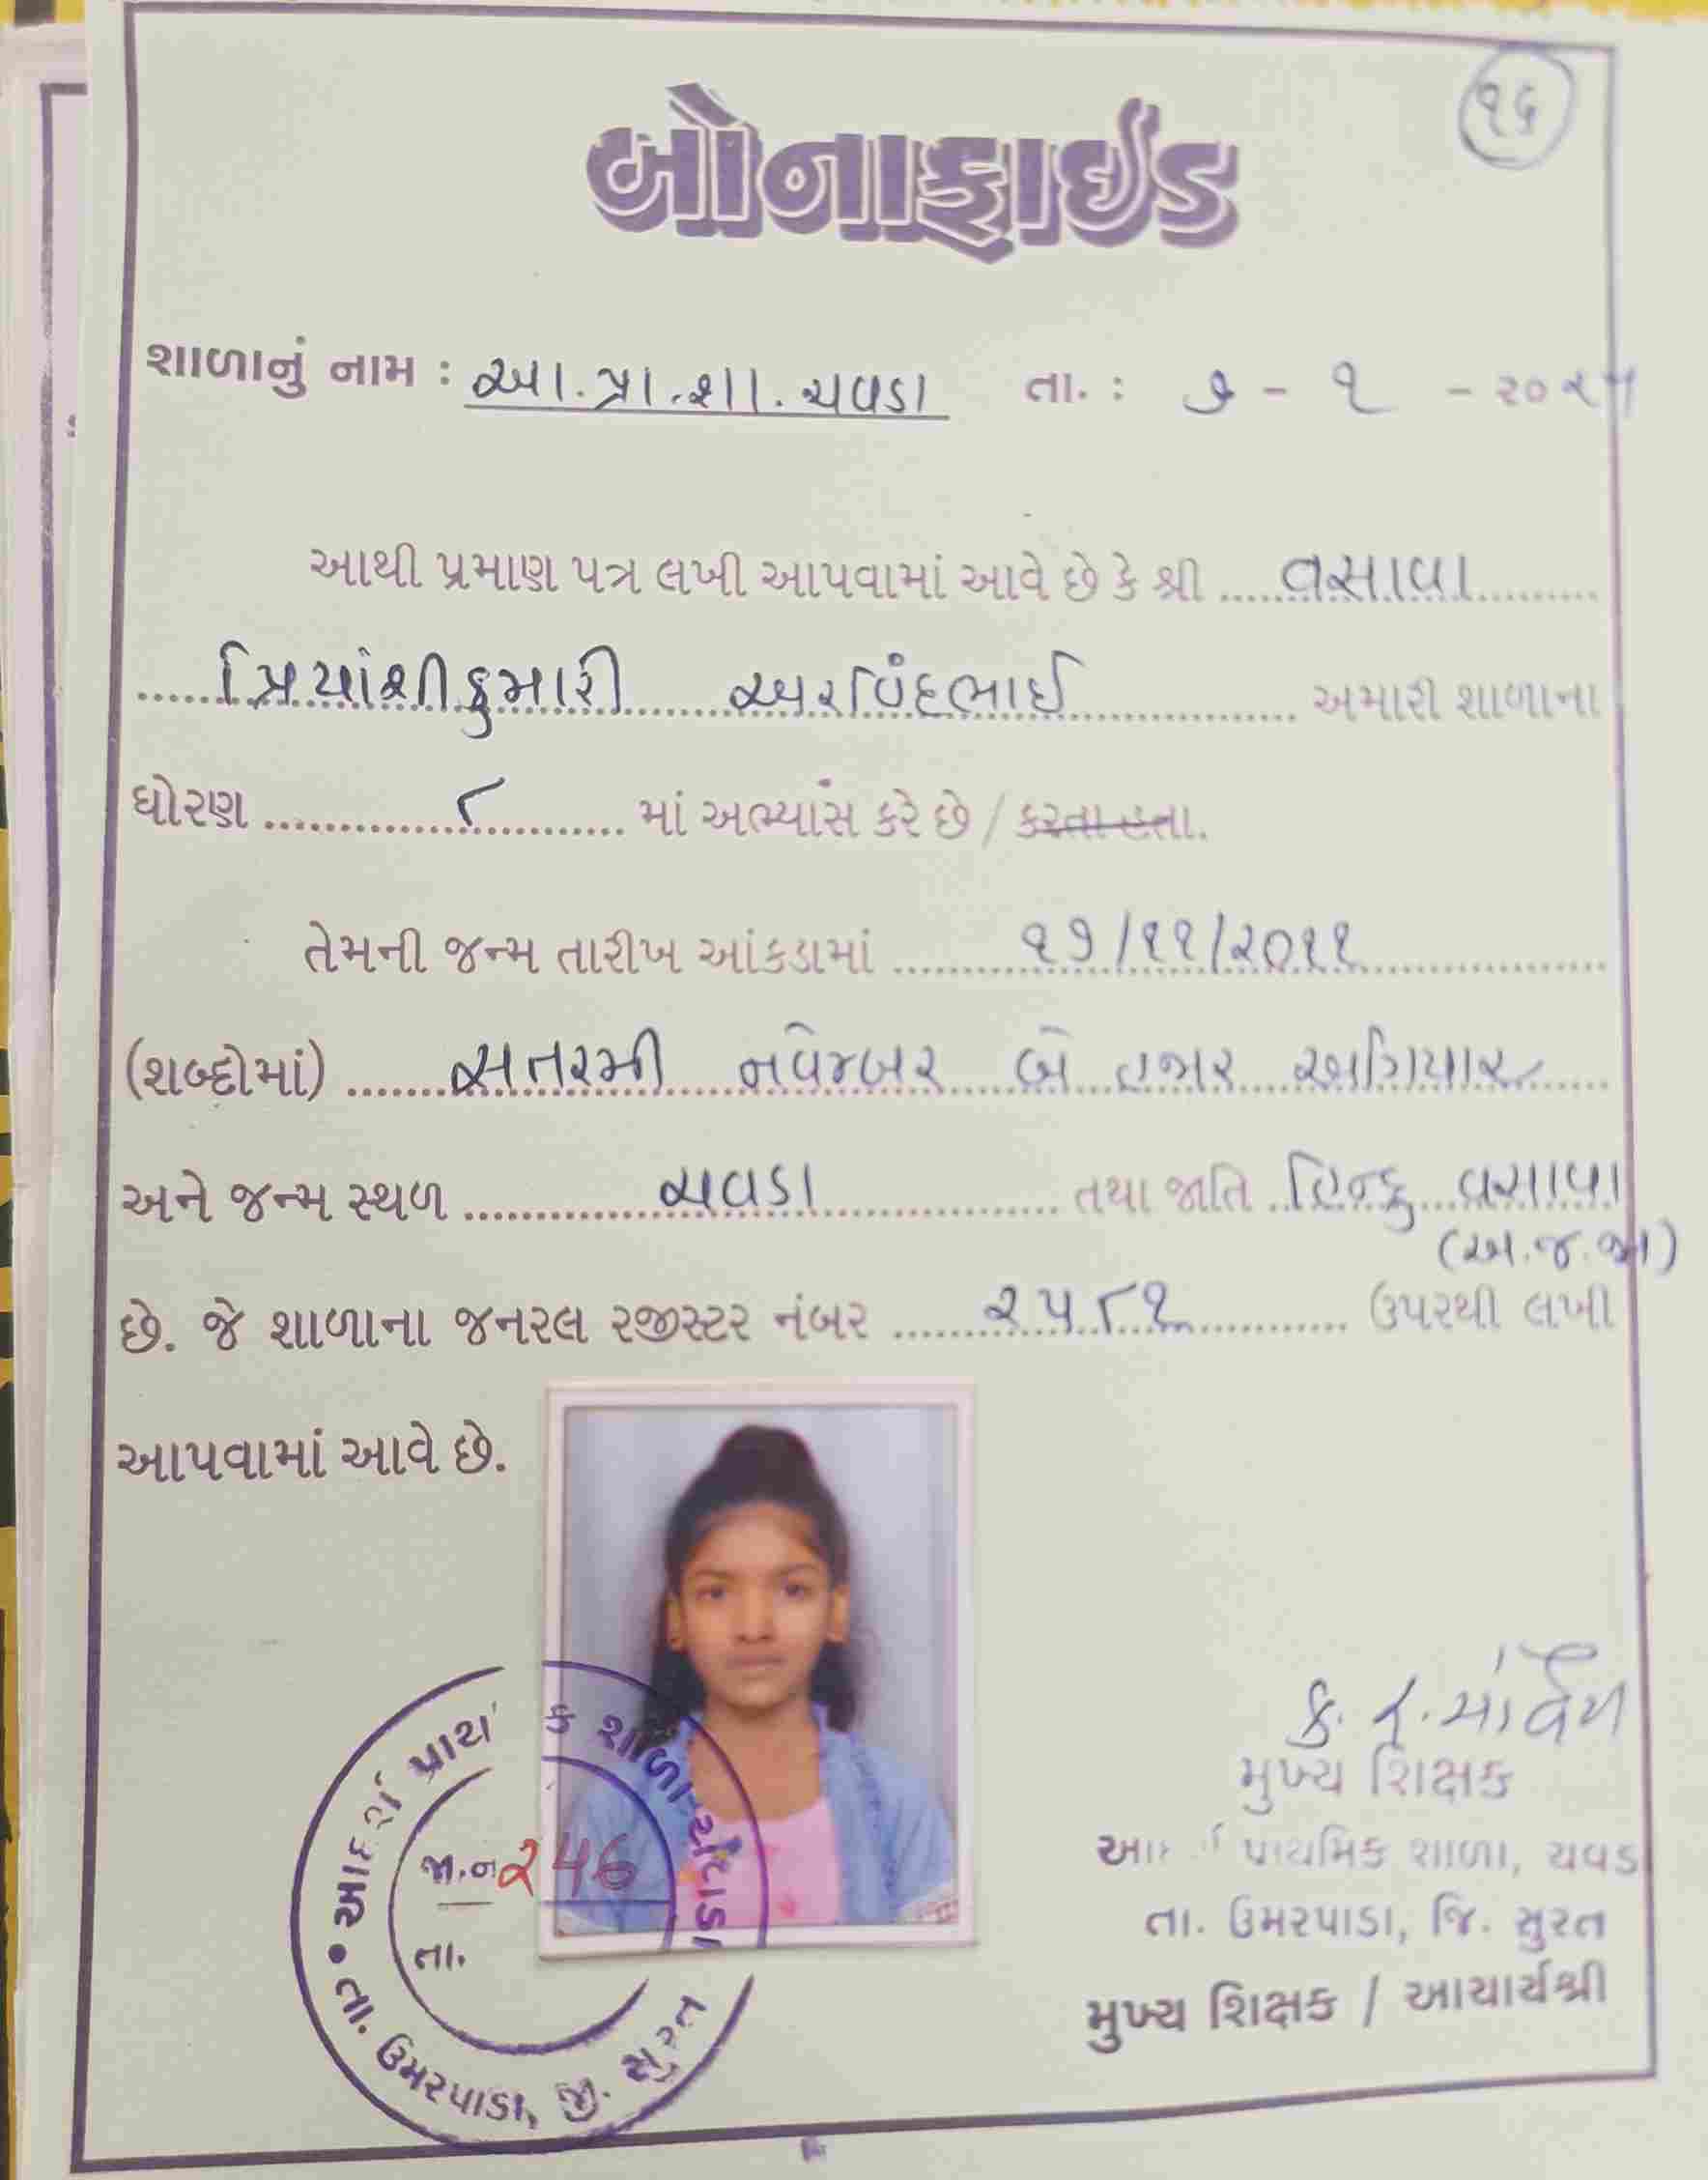 ૧૬
બોનાફાઈડ
શાળાનું નામ : આ.પ્રા.શા. ચવડા તા. : ૭ - ૧ - ૨૦૨૫
આથી પ્રમાણ પત્ર લખી આપવામાં આવે છે કે શ્રી વસાવા
પ્રિયાંશીકુમારી અરવિંદભાઈ અમારી શાળાના
ધોરણ ૮ માં અભ્યાસ કરે છે / કરતા હતા.
તેમની જન્મ તારીખ આંકડામાં ૧૭/૧૧/૨૦૧૧
(શબ્દોમાં) સતરમી નવેમ્બર બે હજાર અગિયાર
અને જન્મ સ્થળ ચવડા તથા જાતિ હિન્દુ વસાવા
(અ.જ.જા)
છે. જે શાળાના જનરલ રજીસ્ટર નંબર ૨૫૮૧ ઉપરથી લખી
આપવામાં આવે છે.
મુખ્ય શિક્ષક
પ્રાથમિક શાળા, ચવડા
તા. ઉમરપાડા, જિ. સુરત
મુખ્ય શિક્ષક / આચાર્યશ્રી
આદર્શ પ્રાથ ક શાળા
જા.ન 246
તા.
તા. ઉમરપાડા, જી. સુરત